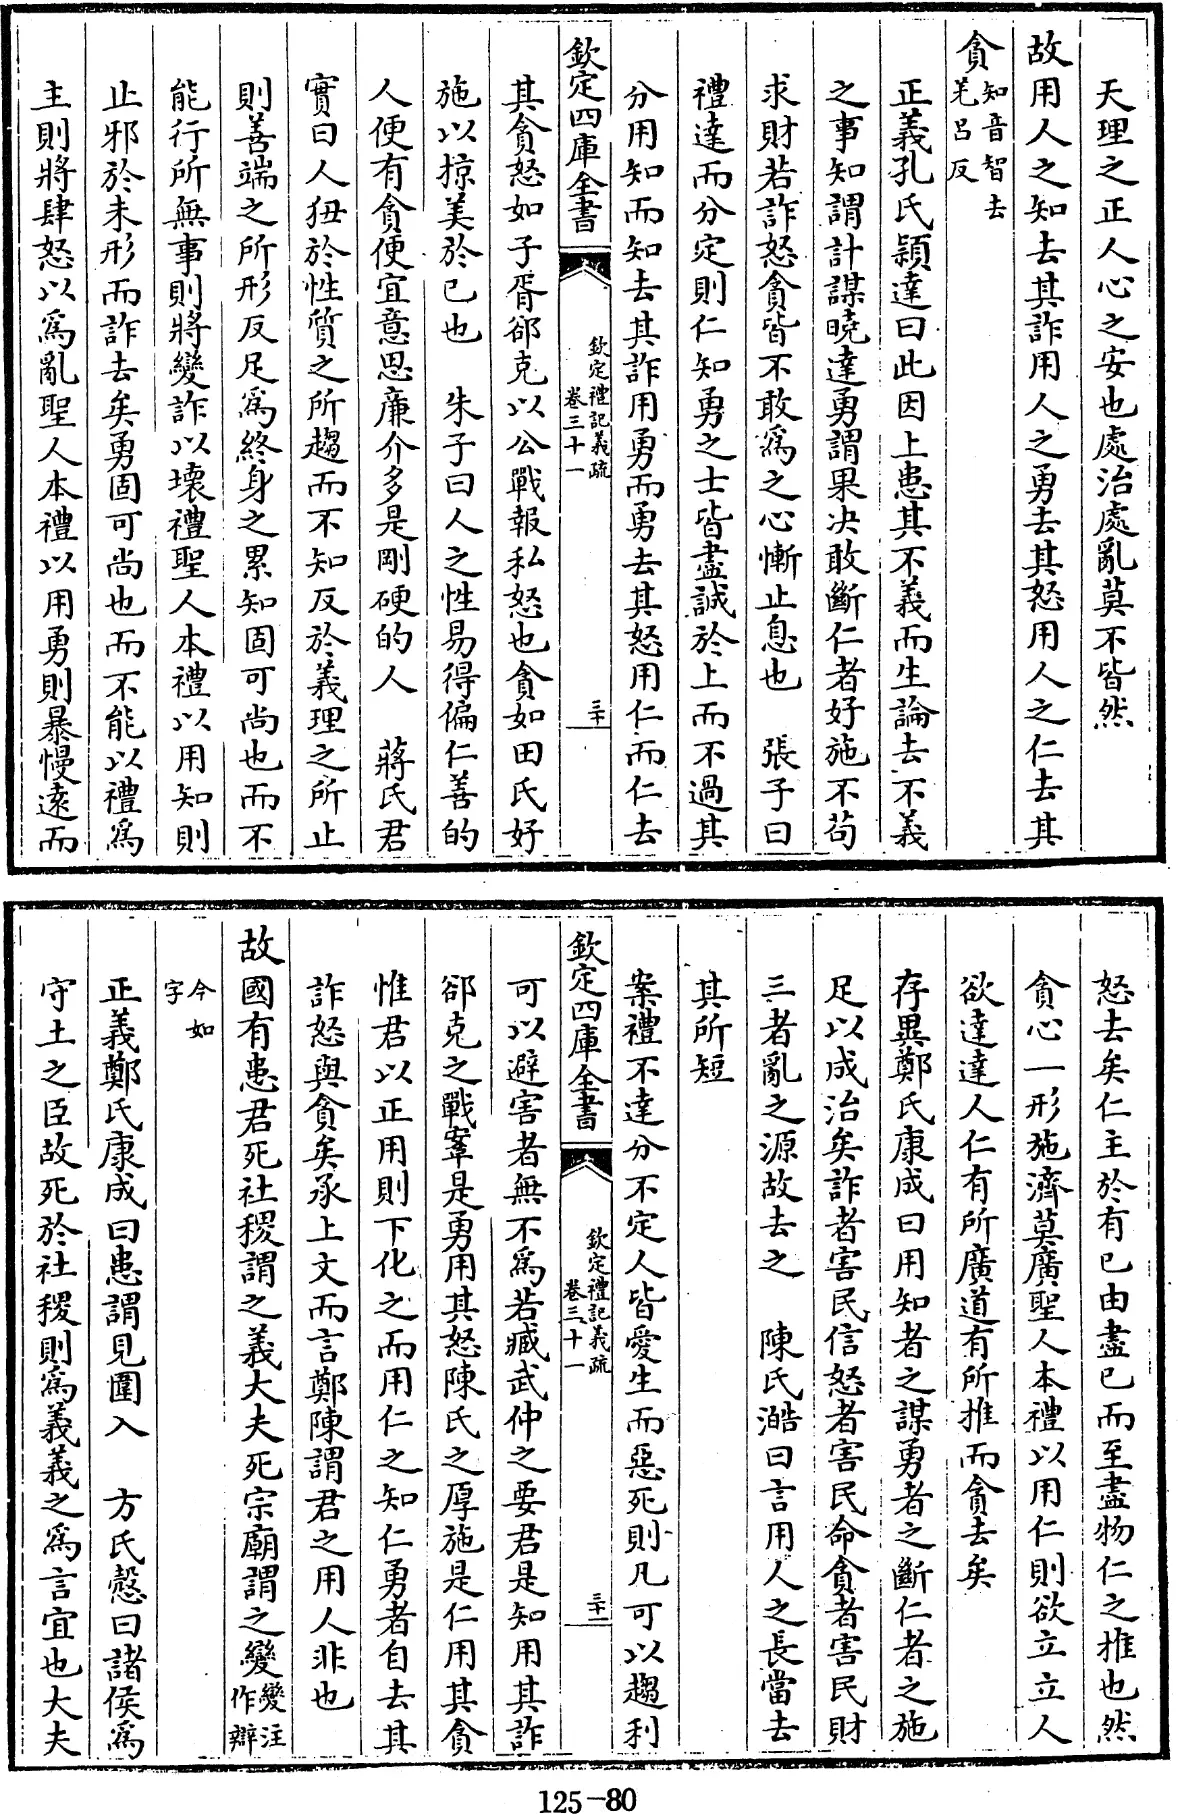 天理之正人心之安也處治處亂莫不皆然
故用人之知去其詐用人之勇去其怒用人之仁去其
貪知音智去羌呂反
正義孔氏頴達曰此因上患其不義而生論去不義
之事知謂計謀曉達勇謂果决敢斷仁者好施不苟
求財若詐怒貪皆不敢為之心慚止息也　張子曰
禮達而分定則仁知勇之士皆盡誠於上而不過其
分用知而知去其詐用勇而勇去其怒用仁而仁去
欽定四庫全書　欽定禮記義疏卷三十一　三十
其貪怒如子胥郤克以公戰報私怒也貪如田氏好
施以掠美於已也　朱子曰人之性易得偏仁善的
人便有貪便宜意思廉介多是剛硬的人　蔣氏君
實曰人狃於性質之所趨而不知反於義理之所止
則善端之所形反足為終身之累知固可尚也而不
能行所無事則將變詐以壞禮聖人本禮以用知則
止邪於未形而詐去矣勇固可尚也而不能以禮為
主則將肆怒以為亂聖人本禮以用勇則暴慢逺而
怒去矣仁主於有已由盡已而至盡物仁之推也然
貪心一形施濟莫廣聖人本禮以用仁則欲立立人
欲達達人仁有所廣道有所推而貪去矣
存異鄭氏康成曰用知者之謀勇者之斷仁者之施
足以成治矣詐者害民信怒者害民命貪者害民財
三者亂之源故去之　陳氏澔曰言用人之長當去
其所短
案禮不達分不定人皆愛生而惡死則凡可以趨利
欽定四庫全書　欽定禮記義疏卷三十一　三十一
可以避害者無不為若臧武仲之要君是知用其詐
郤克之戰鞌是勇用其怒陳氏之厚施是仁用其貪
惟君以正用則下化之而用仁之知仁勇者自去其
詐怒與貪矣承上文而言鄭陳謂君之用人非也
故國有患君死社稷謂之義大夫死宗廟謂之變變注作辯
今如字
正義鄭氏康成曰患謂見圍入　方氏慤曰諸侯為
守土之臣故死於社稷則為義義之為言宜也大夫
125-80